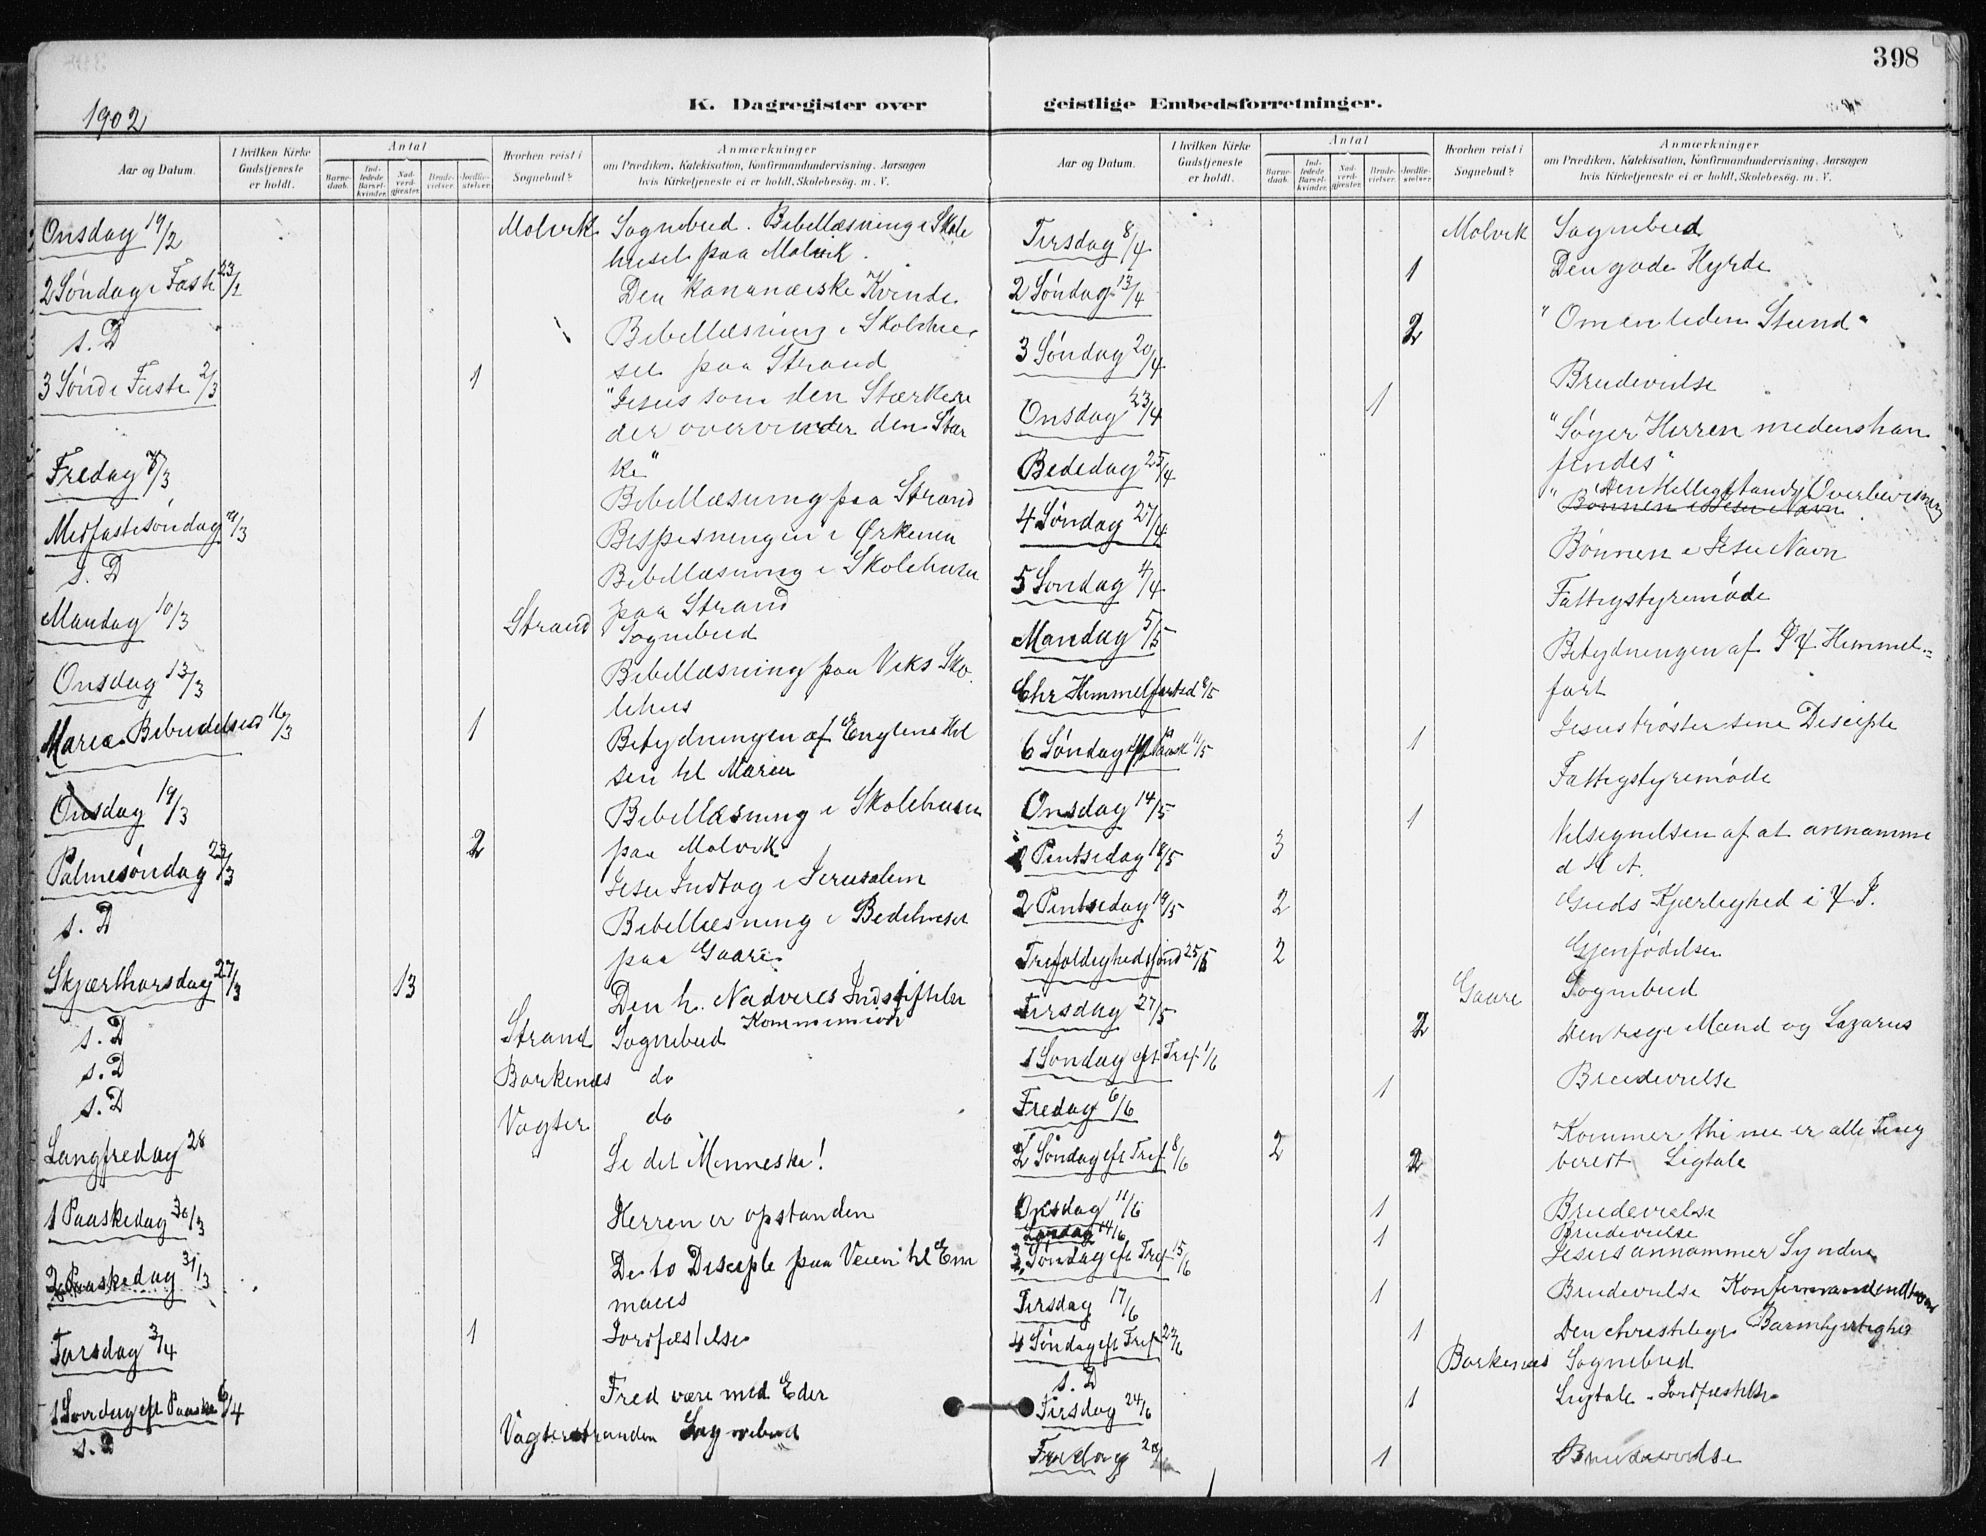 398
1902
K. Dagregister over
geistlige Embedsforretninger.
Aar og Datum.
I hvilken Kirke Gudstjeneste er holdt.
Antal
Barne-daab.
Ind-ledede Barsel-kvinder.
Nad-verd-gjester.
Brude-vielser.
Jordfæ-stelser.
Hvorhen reist i Sognebud?
Anmærkninger
om Prædiken, Katekisation, Konfirmandundervisning, Aarsagen
hvis Kirketjeneste ei er holdt, Skolebesøg. m. V.
Onsdag 19/2 Molvik Sognebud. Bibellæsning i Skole
huset paa Molvik.
2 Søndag i Faste 23/2 Den kananæiske Kvinde
s. D Bibellæsning i Skolehu-
set paa Strand
3 Sønd i Faste 2/3 1 "Jesus som den Stærkere
der overvinder den Stær
ke"
Fredag 7/3 Bibellæsning paa Strand
Midfastesøndag 9/3 Bespisningen i Ørkenen
s. D Bibellæsning i Skolehuset
paa Strand
Mandag 10/3 Strand Sognebud
Onsdag 13/3 Bibellæsning paa Viks Sko-
lehus
Maria Bebudelsesd 16/3 1 Betydningen af Englens Hil
sen til Maria
Onsdag 19/3 Bibellæsning i Skolehuset
paa Molvik
Palmesøndag 23/3 2 Jesu Indtog i Jerusalem
s. D Bibellæsning i Bedehuset
paa Gaare
Skjærthorsdag 27/3 13 Den h. Nadveres Indstiftelse
Kommunion
s. D Strand Sognebud
s. D Barkenæs do
s. D Vagter do
Langfredag 28 Se det Menneske!
1 Paaskedag 30/3 Herren er opstanden
2 Paaskedag 31/3 De to Disciple paa Veien til Em
maus
Torsdag 3/4 1 Jordfæstelse
1 Søndag eft Paaske 6/4 Fred være med Eder
s. D Vagterstranden Sognebud
Aar og Datum.
I hvilken Kirke Gudstjeneste er holdt.
Antal
Barne-daab.
Ind-ledede Barsel-kvinder.
Nad-verd-gjester.
Brude-vielser.
Jordfæ-stelser.
Hvorhen reist i Sognebud?
Anmærkninger
om Prædiken, Katekisation, Konfirmandundervisning, Aarsagen
hvis Kirketjeneste ei er holdt, Skolebesøg. m. V.
Tirsdag 8/4 Molvik Sognebud
2 Søndag 13/4 1 Den gode Hyrde
3 Søndag 20/4 2 "Om en liden Stund"
Onsdag 23/4 1 Brudevielse
Bededag 25/4 "Søger Herren medens han
findes"
4 Søndag 27/4 "Den Helligaands Overbevisning
Bønnen i Jesu Navn
5 Søndag 4/4 Bønnen i Jesu Navn
Mandag 5/5 Fattigstyremøde
Chr Himmelfartsd 8/5 Betydningen af J X Himmel-
fart
6 Søndag eft Paask 11/5 1 Jesus trøster sine Disciple
Onsdag 14/5 Fattigstyremøde
1 Pintsedag 18/5 3 1 Velsignelsen af at annamme
d H A.
2 Pintsedag 19/5 2 Guds Kjærlighed i X J.
Trefoldighedssønd 25/5 2 Gjenfødelsen
Tirsdag 27/5 Gaare Sognebud
1 Søndag eft Tref 1/6 2 Den rige Mand og Lazarus
Fredag 6/6 1 Brudevielse
2 Søndag eft Tref 8/6 2 2 Kommer thi nu er alle Ting
beredt Ligtale
Onsdag 11/6 1 Brudevielse
Lørdag 14/6 1 Brudevielse
3 Søndag eft Tref 15/6 Jesus annammer Syndere
Tirsdag 17/6 1 Brudevielse
4 Søndag eft Tref 22/6 1 Den christelige Barmhjertighed
s. D Barkenæs Sognebud
Tirsdag 24/6 1 Ligtale. Jordfæstelse
Fredag 1 Brudevielse